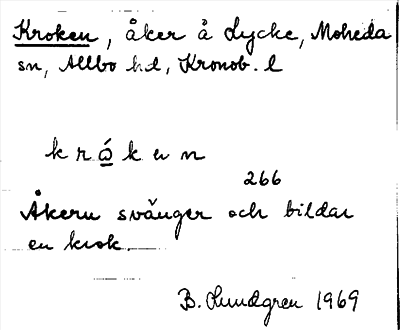 Kroken, åker å Lycke, Moheda
sn, Allbo hd, Kronob. l
k r ó̲ k e n
266
Åkern svänger och bildar
en krok.
B. Lundgren 1969